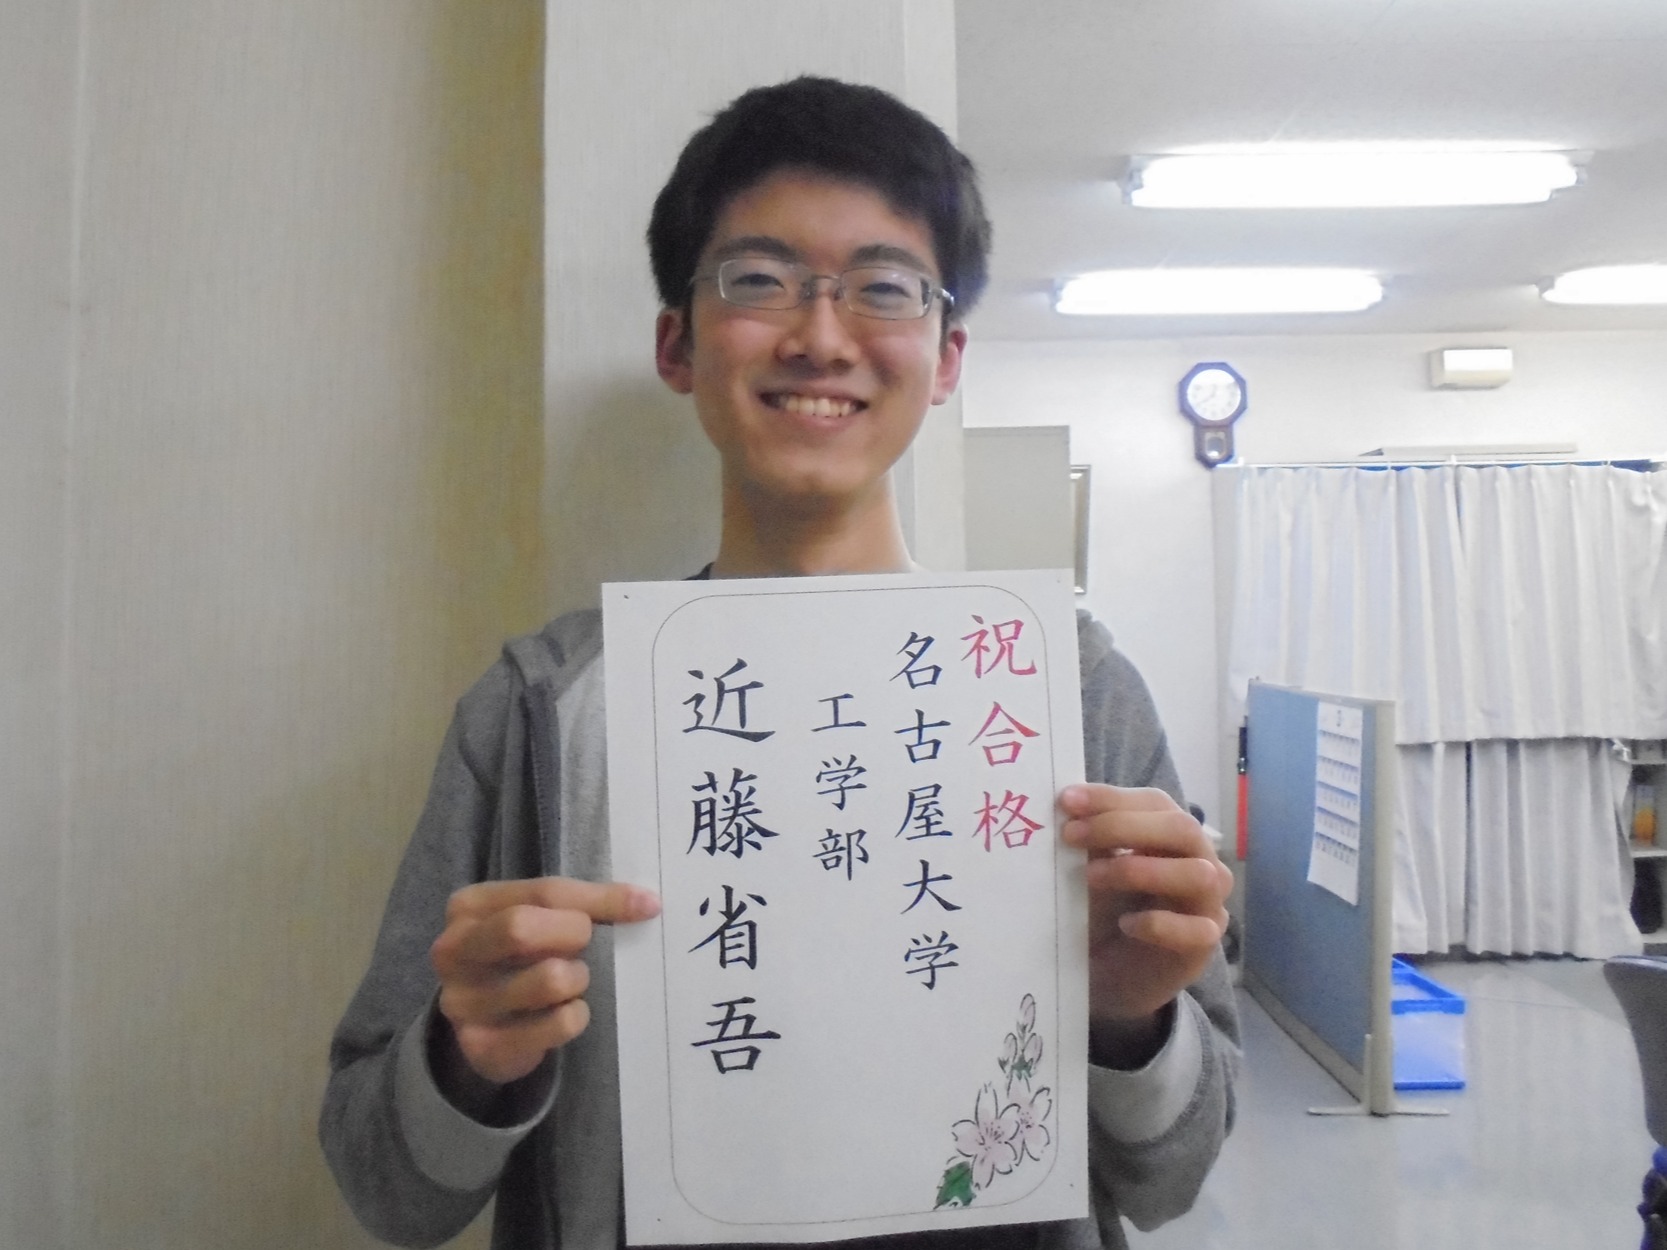 祝合格
名古屋大学
工学部
近藤省吾